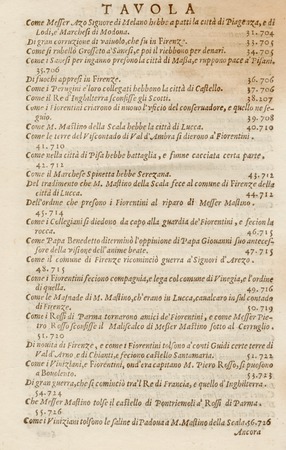 TAVOLA
Come Messer Azo Signore di Melano hebbe a patti la città di Piagenza, e di
Lodi, e Marchesi di Modona. 31.704
Di gran corruzione di vaiuolo, che fu in Firenze. 33.704
Come si rubellò Grosseto a Sanesi, e poi il riebbono per denari. 34.705
Come i Sanesi per inganno presono la città di Massa, e ruppono pace a Pisani.
35.706
Di fuochi appresi in Firenze. 36.706
Come i Perugini e loro collegati hebbono la città di Castello. 37.706
Come il Re d'Inghilterra sconfisse gli Scotti. 38.707
Come i Fiorentini criarono di nuovo l'uficio del conservadore, e quello ne se-
guìo. 39.708
Come M. Mastino della Scala hebbe la città di Lucca. 40.710
Come le terre del Vescovado di Val d'Ambra si dierono a' Fiorentini.
41.710
Come nella città di Pisa hebbe battaglia, e funne cacciata certa parte.
42.711
Come il Marchese Spinetta hebbe Serezana. 43.712
Del tradimento che M. Mastino della Scala fece al comune di Firenze della
città di Lucca. 44.712
Dell'ordine che presono i Fiorentini al riparo di Messer Mastino.
45.714
Come i Collegiani si diedono da capo alla guardia de' Fiorentini, e fecion la
rocca. 46.715
Come Papa Benedetto diterminò l'oppinione di Papa Giovanni suo anteces-
sore della visione dell'anime beate. 47.715
Come il comune di Firenze ricominciò guerra a' Signori d'Arezzo.
48.715
Come i Fiorentini feciono compagnia, e lega col comune di Vinegia, e l'ordine
di quella. 49.716
Come le Masnade di M. Mastino, ch'erano in Lucca, cavalcaro in sul contado
di Firenze. 50.719
Come i Rossi di Parma tornarono amici de' Fiorentini, e come Messer Pie-
tro Rosso sconfisse il Maliscalco di Messer Mastino sotto al Cerruglio.
51.720
Di novità di Firenze, e come i Fiorentini tolsono a' conti Guidi certe terre di
Val d'Arno, e di Chianti, e feciono castello Santamaria. 51.722
Come i Viniziani, e Fiorentini, ond'era capitano M. Piero Rosso, si puosono
a Bonolento. 53.723
Di gran guerra, che si cominciò tra'l Re di Francia, e quello d'Inghilterra.
54.723
Che Messer Mastino tolse il castello di Pontriemoli a' Rossi di Parma.
55.726
Come i Viniziani tolsono le saline di Padova a M. Mastino della Scala. 56.726
Ancora